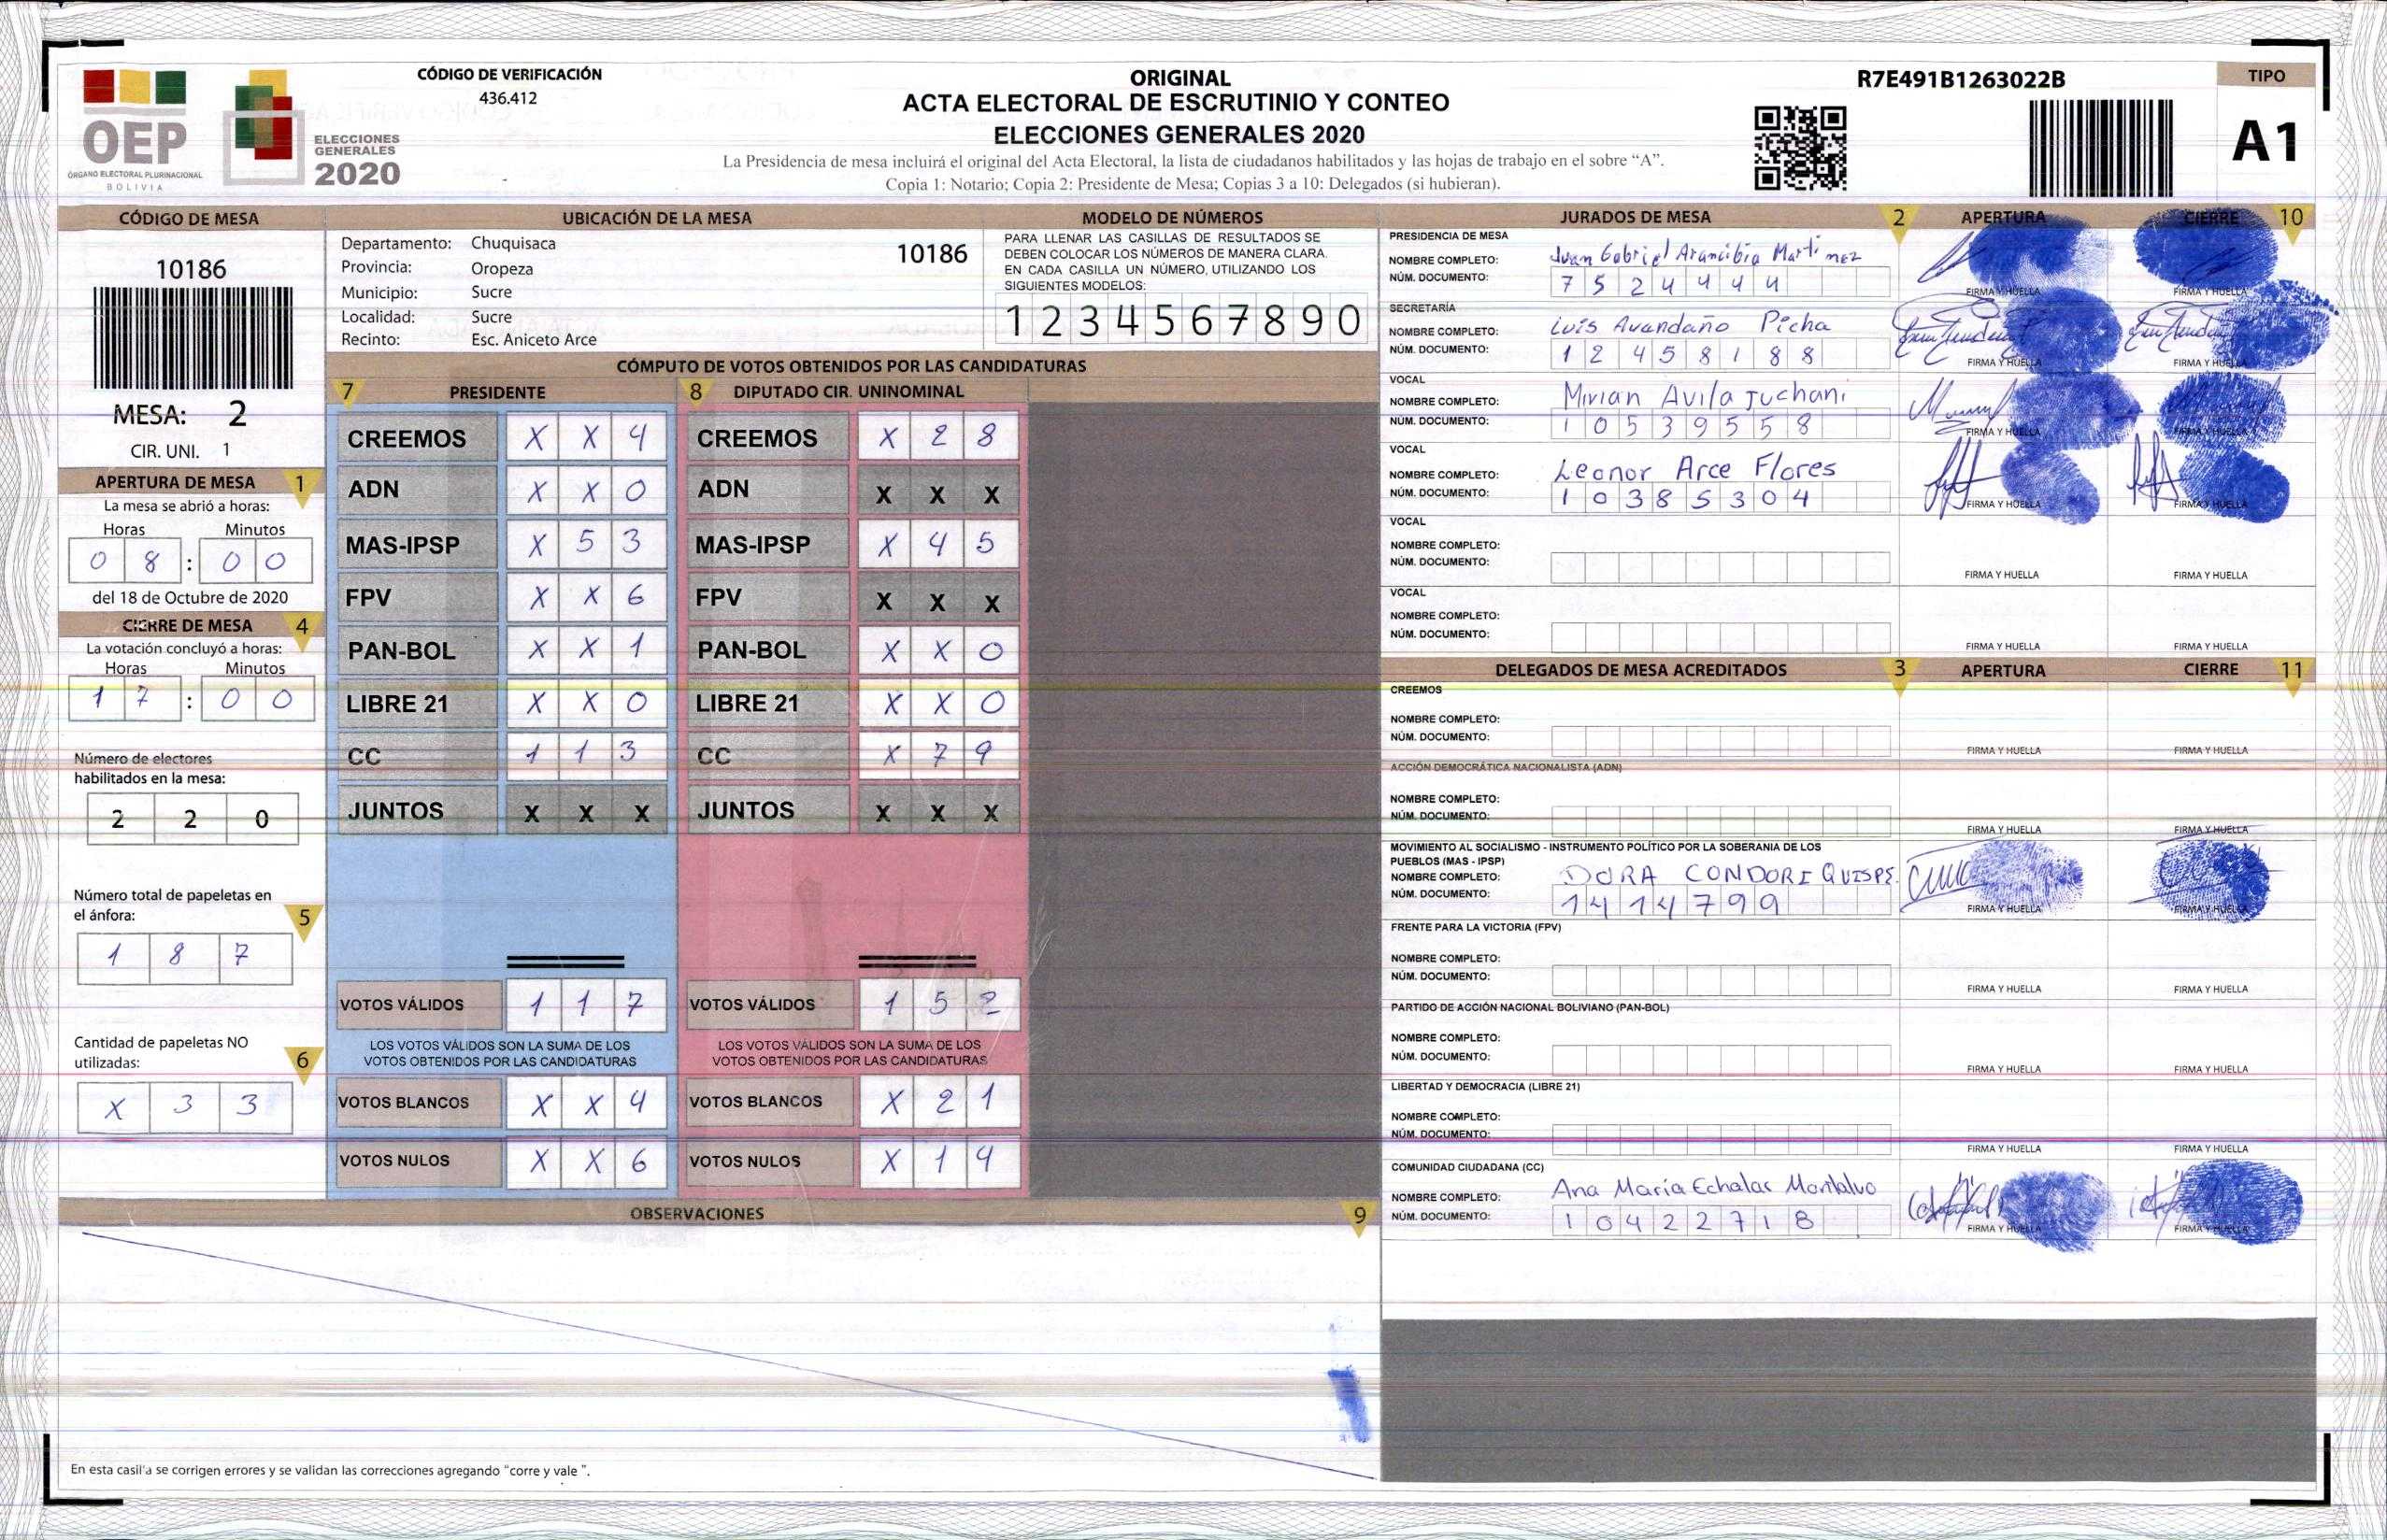 OEP
ÓRGANO ELECTORAL PLURINACIONAL
BOLIVIA
ELECCIONES
GENERALES
2020
CÓDIGO DE VERIFICACIÓN
436.412
ORIGINAL
ACTA ELECTORAL DE ESCRUTINIO Y CONTEO
ELECCIONES GENERALES 2020
La Presidencia de mesa incluirá el original del Acta Electoral, la lista de ciudadanos habilitados y las hojas de trabajo en el sobre “A”.
Copia 1: Notario; Copia 2: Presidente de Mesa; Copias 3 a 10: Delegados (si hubieran).
R7E491B1263022B
TIPO
A1
CÓDIGO DE MESA
10186
MESA: 2
CIR. UNI. 1
APERTURA DE MESA 1
La mesa se abrió a horas:
Horas Minutos
0 8 : 0 0
del 18 de Octubre de 2020
CIERRE DE MESA 4
La votación concluyó a horas:
Horas Minutos
1 7 : 0 0
Número de electores
habilitados en la mesa:
2 2 0
Número total de papeletas en
el ánfora: 5
1 8 7
Cantidad de papeletas NO
utilizadas: 6
X 3 3
UBICACIÓN DE LA MESA
Departamento: Chuquisaca 10186
Provincia: Oropeza
Municipio: Sucre
Localidad: Sucre
Recinto: Esc. Aniceto Arce
MODELO DE NÚMEROS
PARA LLENAR LAS CASILLAS DE RESULTADOS SE
DEBEN COLOCAR LOS NÚMEROS DE MANERA CLARA.
EN CADA CASILLA UN NÚMERO, UTILIZANDO LOS
SIGUIENTES MODELOS:
1 2 3 4 5 6 7 8 9 0
CÓMPUTO DE VOTOS OBTENIDOS POR LAS CANDIDATURAS
7 PRESIDENTE 8 DIPUTADO CIR. UNINOMINAL
CREEMOS X X 4 CREEMOS X 2 8
ADN X X 0 ADN X X X
MAS-IPSP X 5 3 MAS-IPSP X 4 5
FPV X X 6 FPV X X X
PAN-BOL X X 1 PAN-BOL X X 0
LIBRE 21 X X 0 LIBRE 21 X X 0
CC 1 1 3 CC X 7 9
JUNTOS X X X JUNTOS X X X
VOTOS VÁLIDOS 1 1 7 VOTOS VÁLIDOS 1 5 2
LOS VOTOS VÁLIDOS SON LA SUMA DE LOS LOS VOTOS VÁLIDOS SON LA SUMA DE LOS
VOTOS OBTENIDOS POR LAS CANDIDATURAS VOTOS OBTENIDOS POR LAS CANDIDATURAS
VOTOS BLANCOS X X 4 VOTOS BLANCOS X 2 1
VOTOS NULOS X X 6 VOTOS NULOS X 1 4
OBSERVACIONES 9
En esta casilla se corrigen errores y se validan las correcciones agregando “corre y vale ”.
JURADOS DE MESA 2 APERTURA CIERRE 10
PRESIDENCIA DE MESA
NOMBRE COMPLETO: Juan Gabriel Arancibia Martinez
NÚM. DOCUMENTO: 7 5 2 4 4 4 4
FIRMA Y HUELLA FIRMA Y HUELLA
SECRETARÍA
NOMBRE COMPLETO: Luis Avandaño Picha
NÚM. DOCUMENTO: 1 2 4 5 8 1 8 8
FIRMA Y HUELLA FIRMA Y HUELLA
VOCAL
NOMBRE COMPLETO: Mirian Avila Juchani
NÚM. DOCUMENTO: 1 0 5 3 9 5 5 8
FIRMA Y HUELLA FIRMA Y HUELLA
VOCAL
NOMBRE COMPLETO: Leonor Arce Flores
NÚM. DOCUMENTO: 1 0 3 8 5 3 0 4
FIRMA Y HUELLA FIRMA Y HUELLA
VOCAL
NOMBRE COMPLETO:
NÚM. DOCUMENTO:
FIRMA Y HUELLA FIRMA Y HUELLA
VOCAL
NOMBRE COMPLETO:
NÚM. DOCUMENTO:
FIRMA Y HUELLA FIRMA Y HUELLA
DELEGADOS DE MESA ACREDITADOS 3 APERTURA CIERRE 11
CREEMOS
NOMBRE COMPLETO:
NÚM. DOCUMENTO:
FIRMA Y HUELLA FIRMA Y HUELLA
ACCIÓN DEMOCRÁTICA NACIONALISTA (ADN)
NOMBRE COMPLETO:
NÚM. DOCUMENTO:
FIRMA Y HUELLA FIRMA Y HUELLA
MOVIMIENTO AL SOCIALISMO - INSTRUMENTO POLÍTICO POR LA SOBERANIA DE LOS
PUEBLOS (MAS - IPSP)
NOMBRE COMPLETO: DORA CONDORI QUISPE.
NÚM. DOCUMENTO: 1 4 1 4 7 9 9
FIRMA Y HUELLA FIRMA Y HUELLA
FRENTE PARA LA VICTORIA (FPV)
NOMBRE COMPLETO:
NÚM. DOCUMENTO:
FIRMA Y HUELLA FIRMA Y HUELLA
PARTIDO DE ACCIÓN NACIONAL BOLIVIANO (PAN-BOL)
NOMBRE COMPLETO:
NÚM. DOCUMENTO:
FIRMA Y HUELLA FIRMA Y HUELLA
LIBERTAD Y DEMOCRACIA (LIBRE 21)
NOMBRE COMPLETO:
NÚM. DOCUMENTO:
FIRMA Y HUELLA FIRMA Y HUELLA
COMUNIDAD CIUDADANA (CC)
NOMBRE COMPLETO: Ana María Echalar Montalvo
NÚM. DOCUMENTO: 1 0 4 2 2 7 1 8
FIRMA Y HUELLA FIRMA Y HUELLA